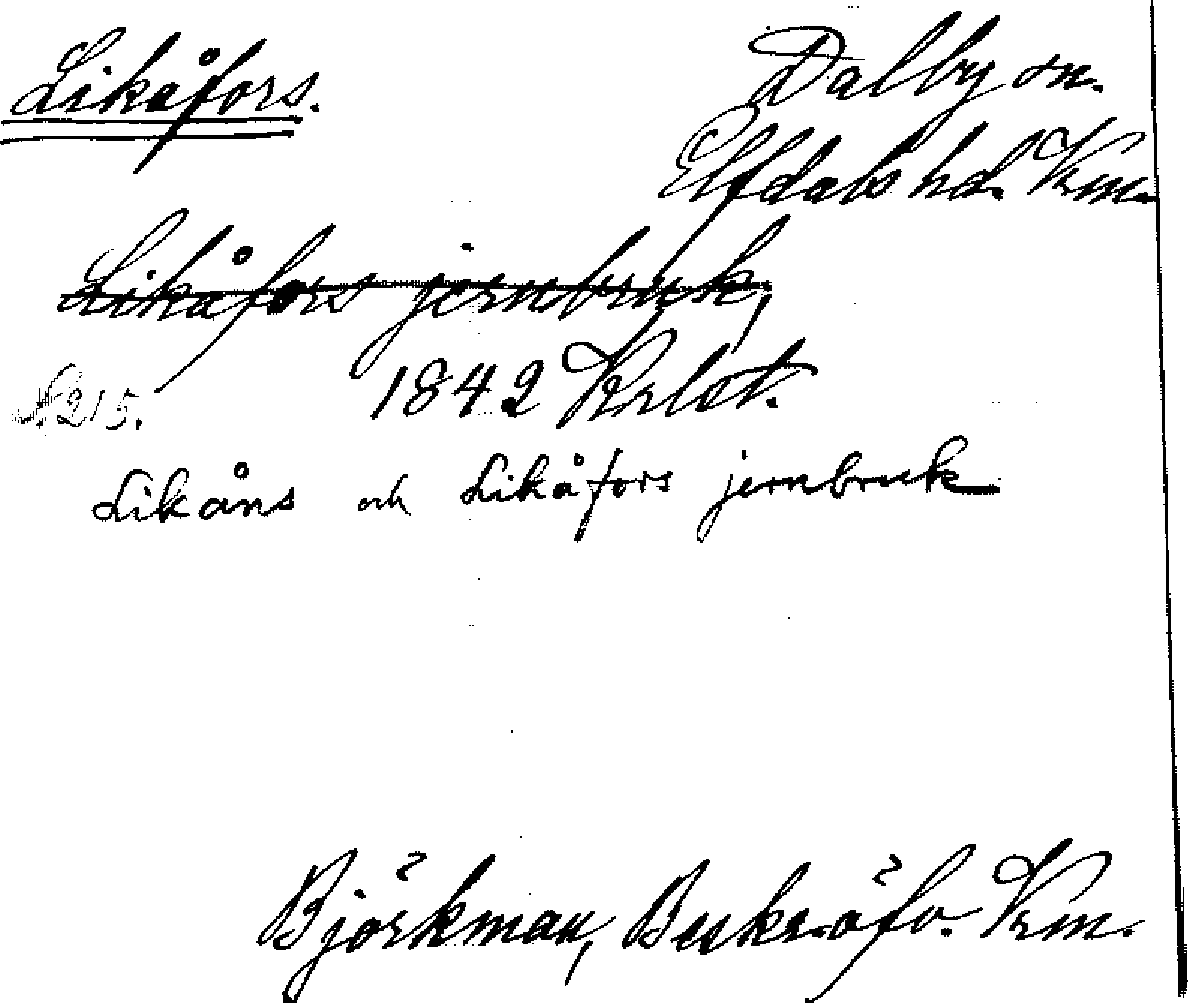 Likåfors.
Dalby sn.
Elfdals hd. Vrm.
Likåfors jernbruk,
S. 215. 1842
Likåns och Likåfors jernbruk
Björkman, Beskr. öfv. Vrm.